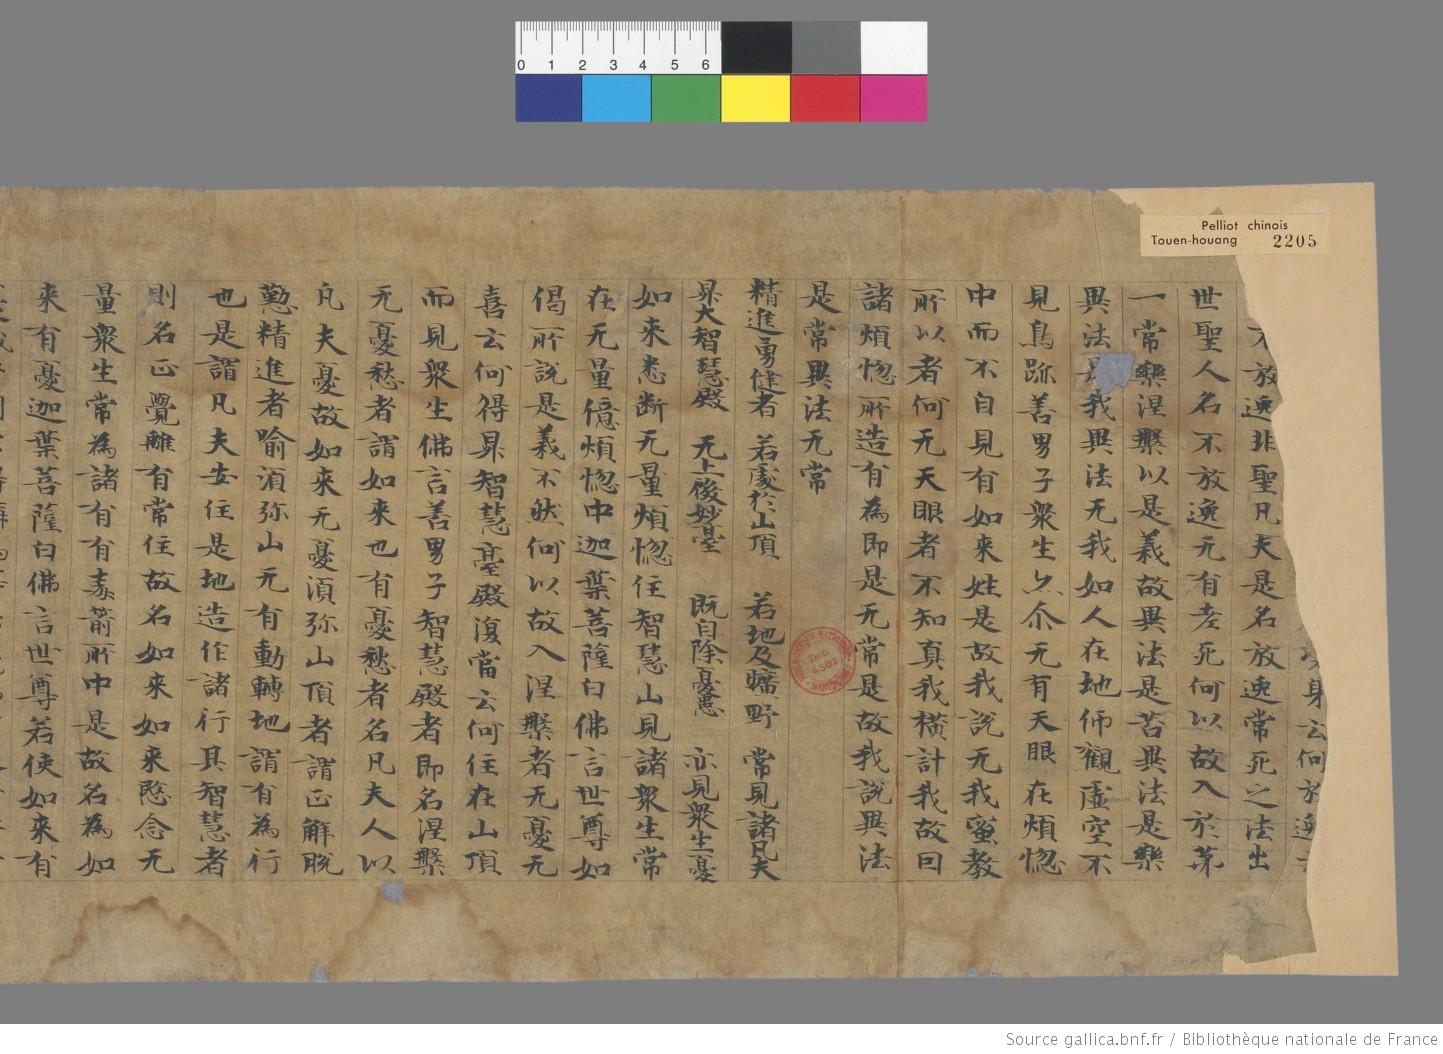 Pelliot chinois
Touen-houang 2205
0 1 2 3 4 5 6
身云何放逸
不放逸非聖凡夫是名放逸常死之法出
世聖人名不放逸无有老死何以故入於苐
一常樂涅槃以是義故異法是苦異法是樂
異法是我異法无我如人在地仰觀虛空不
見鳥跡善男子衆生亦尒无有天眼在煩惚
中而不自見有如来姓是故我說无我蜜教
所以者何无天眼者不知真我橫計我故曰
諸煩惚所造有為即是无常是故我說異法
是常異法无常
精進勇健者 若處於山頂 若地及曠野 常見諸凡夫
昇大智慧殿 无上微妙臺 既自除憂患 亦見衆生憂
如来悉断无量煩惚住智慧山見諸衆生常
在无量億煩惚中迦葉菩薩白佛言世尊如
偈所說是義不然何以故入涅槃者无憂无
喜云何得昇智慧臺殿復當云何住在山頂
而見衆生佛言善男子智慧殿者即名涅槃
无憂愁者謂如来也有憂愁者名凡夫人以
凡夫憂故如来无憂湏弥山頂者謂正解脫
懃精進者喻湏弥山无有動轉地謂有為行
也是謂凡夫安住是地造作諸行其智慧者
則名正覺離有常住故名如来如来愍念无
量衆生常為諸有有毒箭所中是故名為如
来有憂迦葉菩薩白佛言世尊若使如来有
Source gallica.bnf.fr / Bibliothèque nationale de France